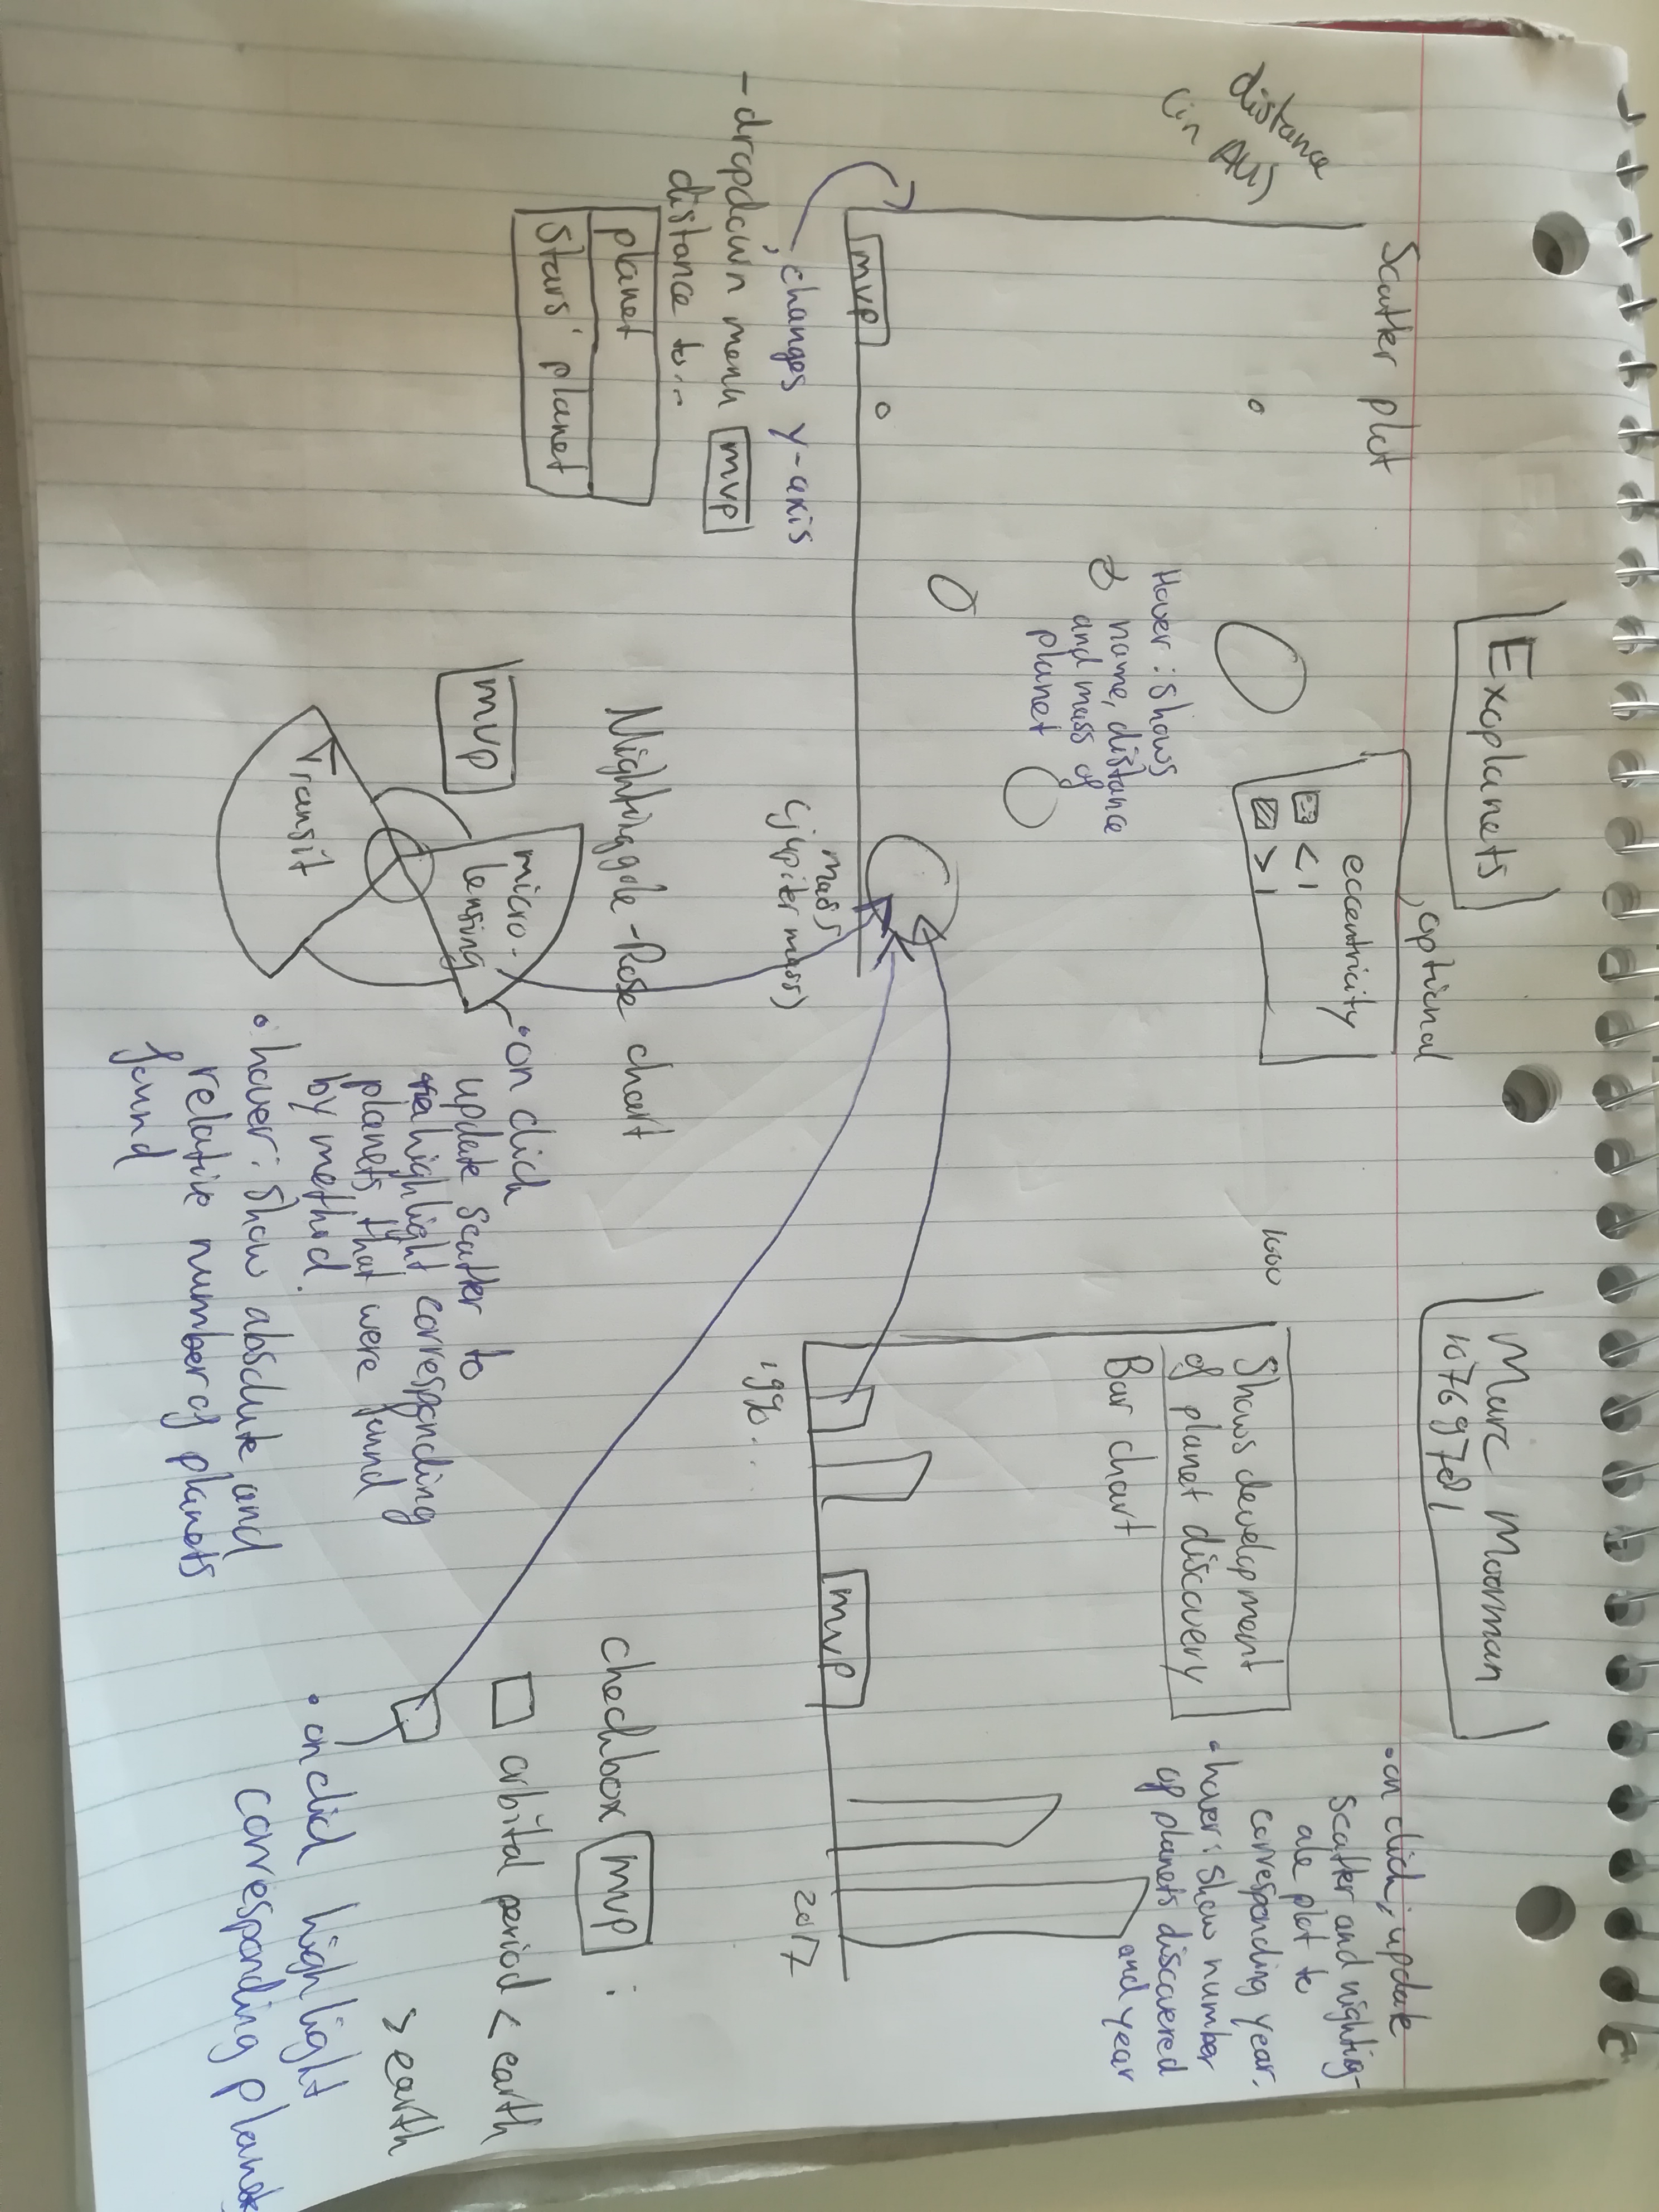 Exoplanets
Marc Moorman
10769781
Scatter plot
optional
eccentricity
< 1
> 1
distance
(in AU)
Hover : shows
name, distance
and mass of
planet
mvp
mass
(jupiter mass)
changes y-axis
- dropdown menu mvp
distance to...
planet
Stars' planet
1000
Shows development
of planet discovery
Bar chart
mvp
199...
2017
• on click; update
scatter and nighting-
ale plot to
corresponding year.
• hover: show number
of planets discovered
and year
Nightinggale-Rose chart
mvp
micro-
lensing
Transit
• on click
update scatter to
highlight corresponding
planets that were found
by method.
• hover: show absolute and
relative number of planets
found
checkbox mvp :
orbital period < earth
> earth
• on click highlight
corresponding planets